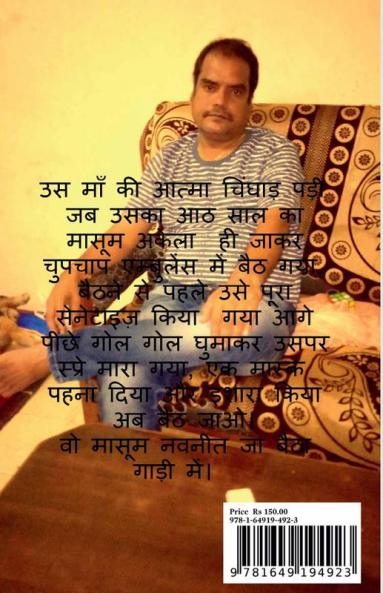 उस माँ की आत्मा चिंघाड़ पड़ी
जब उसका आठ साल का
मासूम अकेला ही जाकर
चुपचाप एम्बुलेंस में बैठ गया
बैठने से पहले उसे पूरा
सेनेटाइज़ किया गया आगे
पीछे गोल गोल घुमाकर उसपर
स्प्रे मारा गया, एक मास्क
पहना दिया और इशारा किया
अब बैठ जाओ।
वो मासूम नवनीत जा बैठा
गाड़ी में।
Price Rs 150.00
978-1-64919-492-3
9 781649 194923